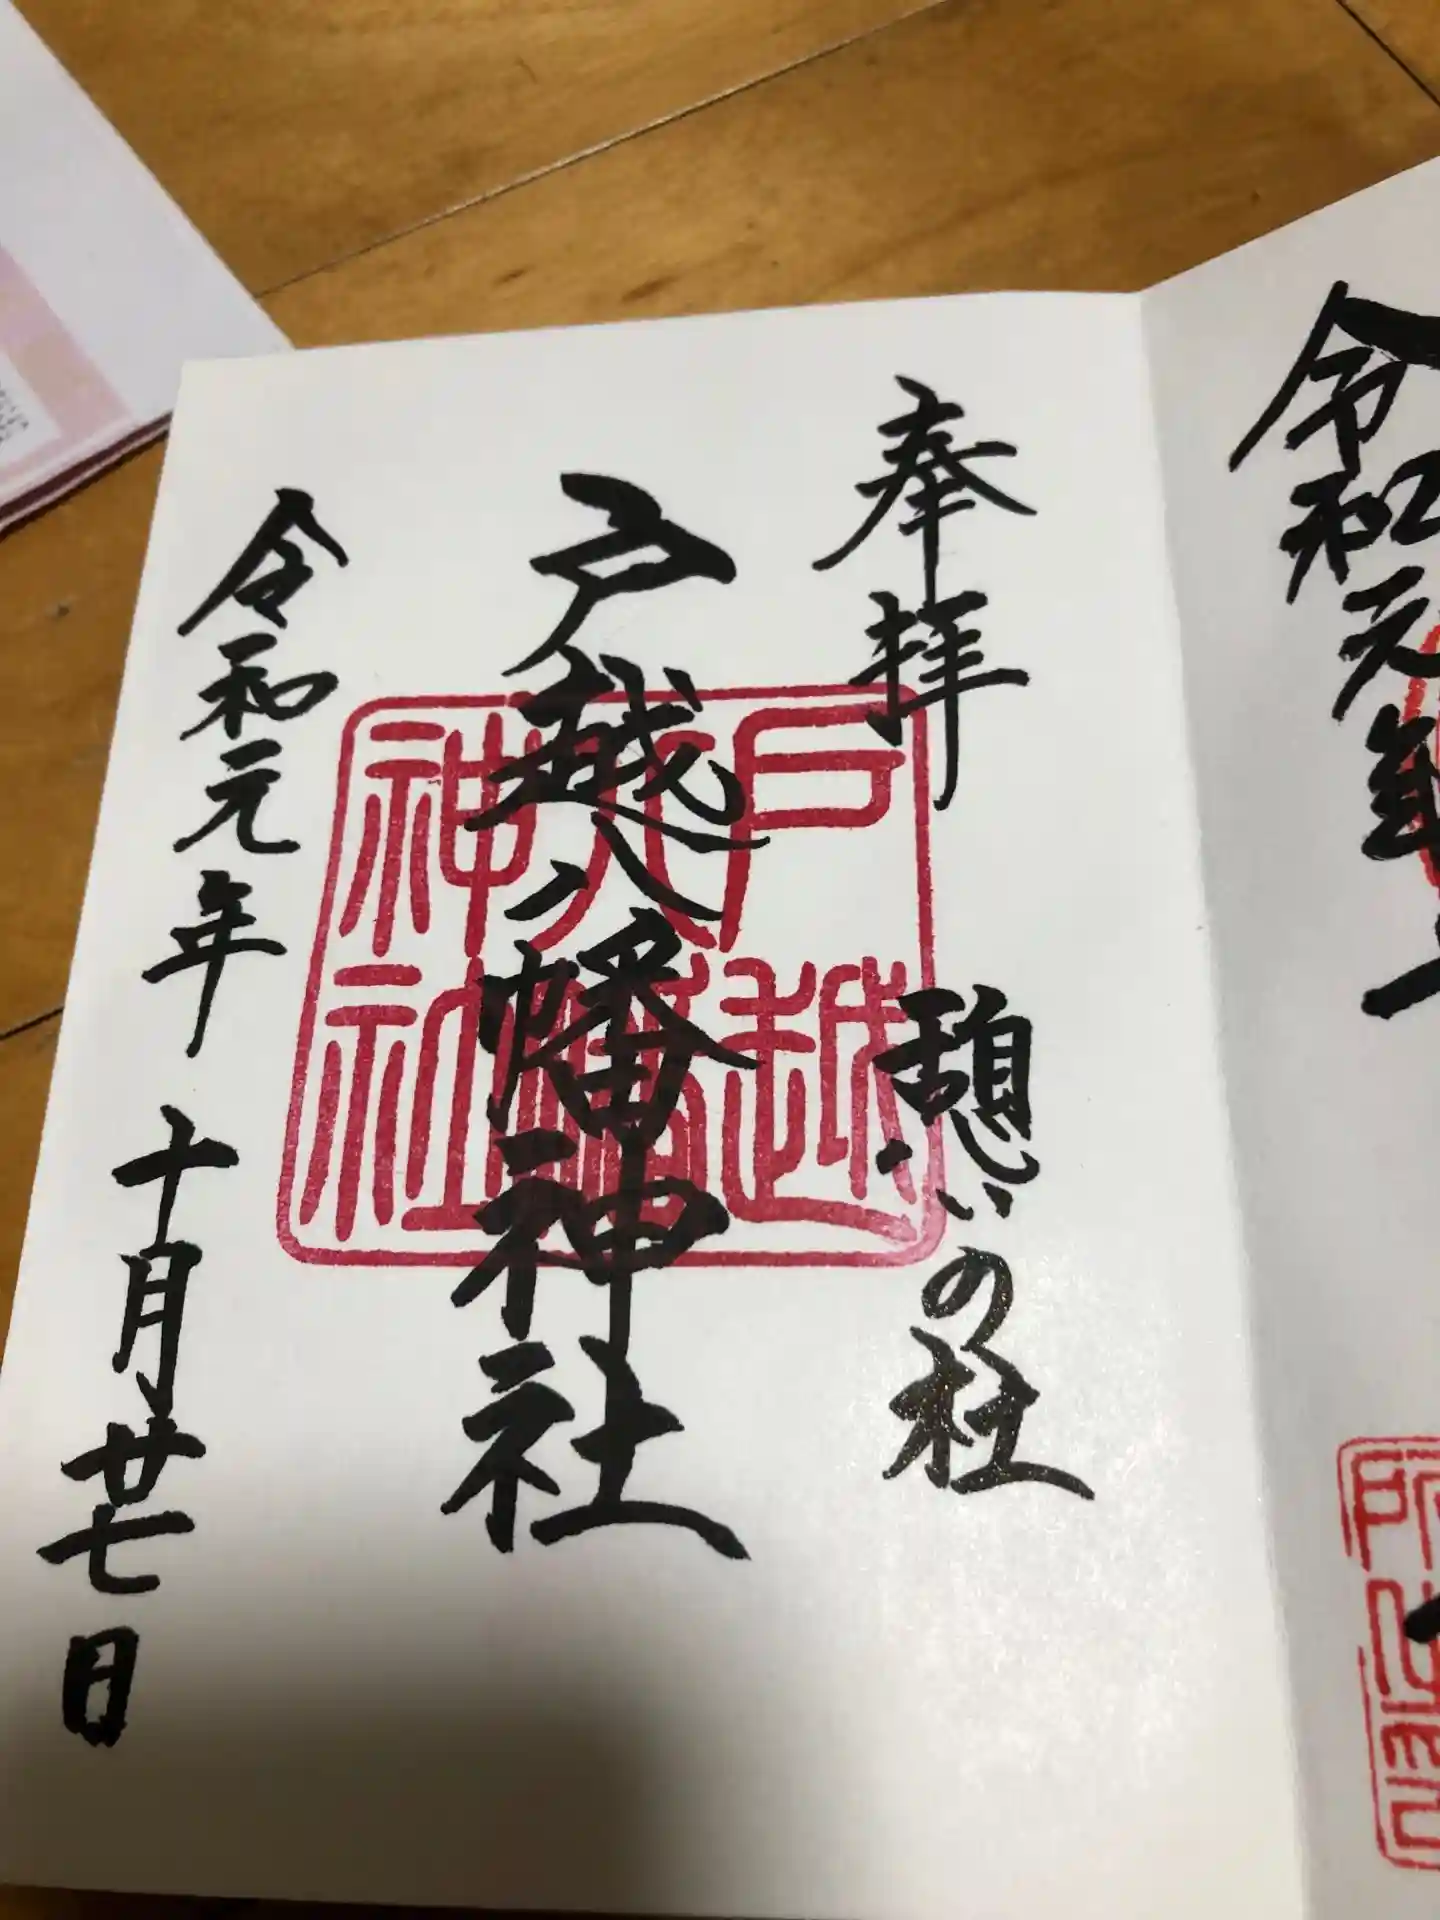 令和元年
奉拝
憩いの杜
戸越八幡神社
戸越
八幡
神社
令和元年 十月廿七日